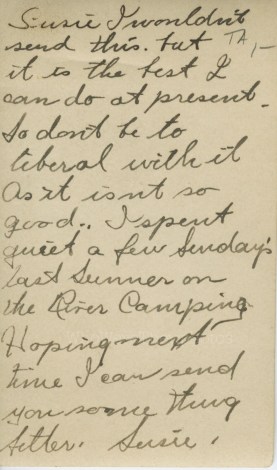 Susie I wouldn't
send this. but TA,-
it is the best I
can do at present.
So don't be to
liberal with it
As it isnt so
good.. I spent
quiet a few Sunday's
last Sumner on
the River Camping
Hoping next
time I can send
you some thing
better. Susie.